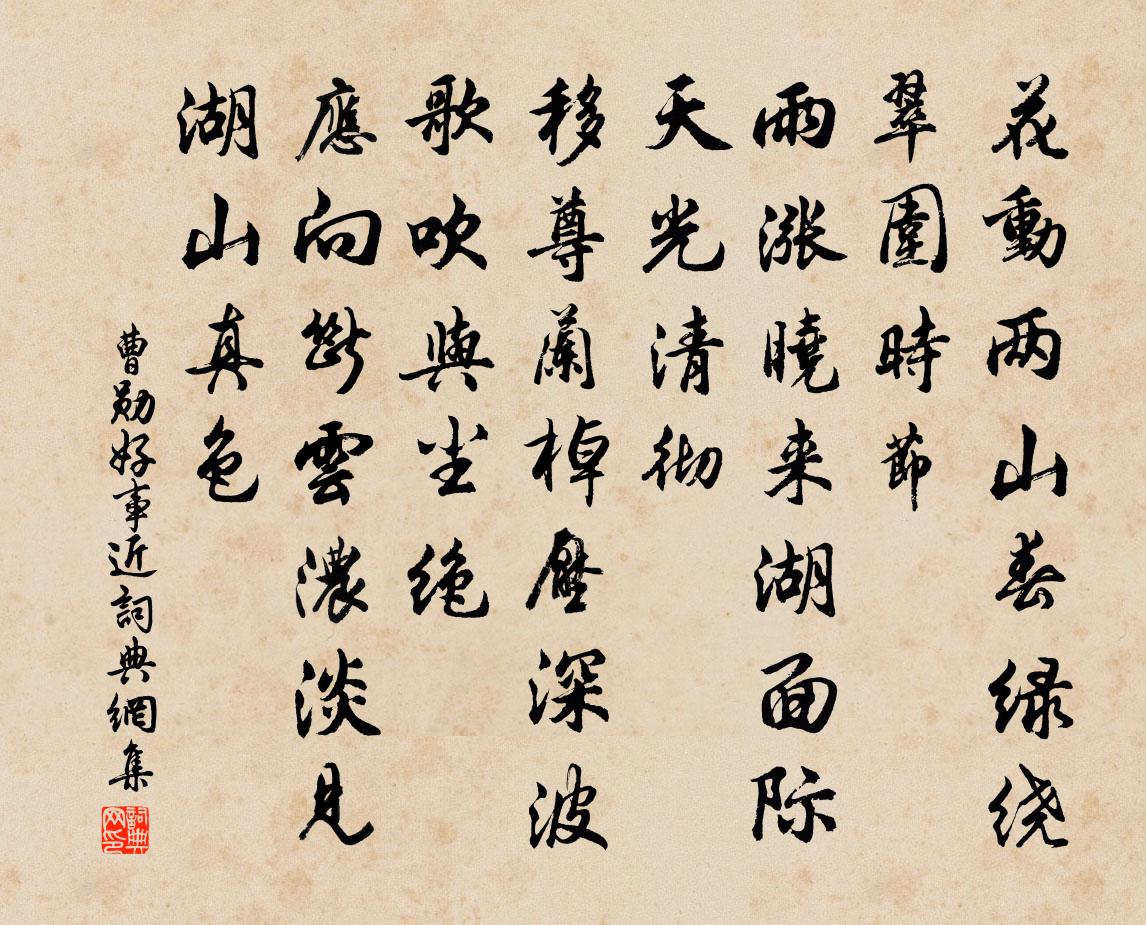 花動两山春绿绕
翠圍時節
雨漲曉来湖面际
天光清彻
移尊蘭棹壓深波
歌吹與尘绝
應向斷雲濃淡見
湖山真色
曹勋好事近詞典網集
詞典网印